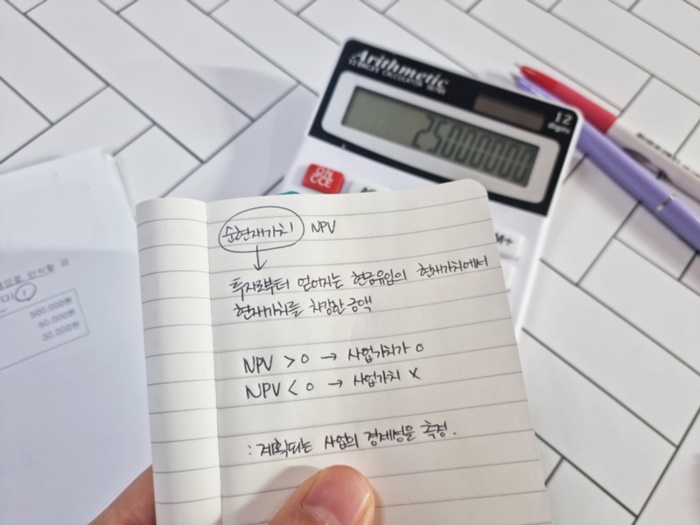 Arithmetic
12 DIGITS CALCULATOR
12
digits
25000000
ON
CCE
M+
순현재가치 NPV
투자로부터 얻어지는 현금유입의 현재가치에서
현재가치를 차감한 금액
NPV > 0 → 사업가치가 O
NPV < 0 → 사업가치 X
: 계획되는 사업의 경제성을 측정.
500.000원
50.000원
30.000원